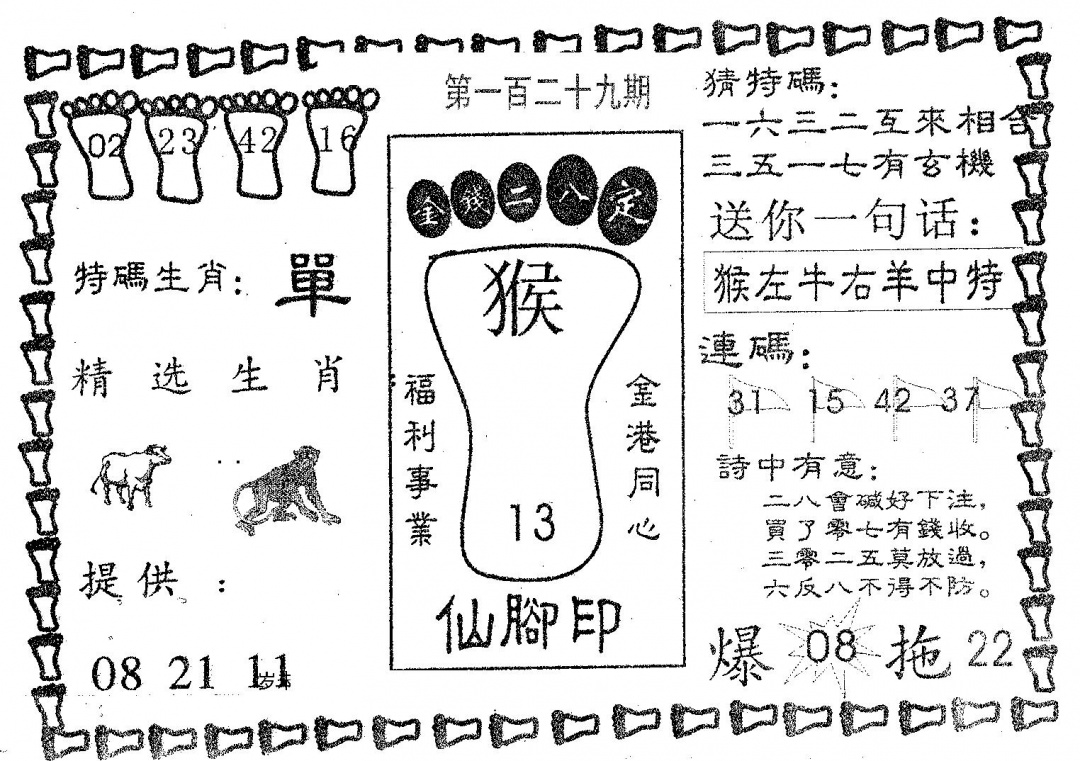 第一百二十九期
02 23 42 16
特碼生肖：單
精选生肖
提供：
08 21 11
金錢二八定
猴
福利事業
金港同心
13
仙腳印
猜特碼：
一六三二互來相合
三五一七有玄機
送你一句话：
猴左牛右羊中特
連碼：
31 15 42 37
詩中有意：
二八會碱好下注，
買了零七有錢收。
三零二五莫放過，
六反八不得不防。
爆 08 拖 22